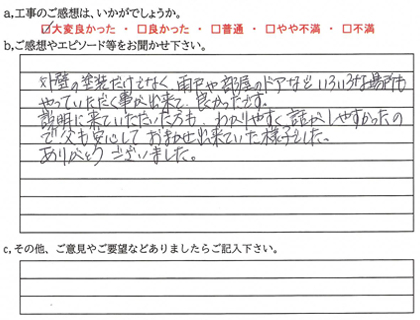 a,工事のご感想は、いかがでしょうか。
☑大変良かった ・ □良かった ・ □普通 ・ □やや不満 ・ □不満
b,ご感想やエピソード等をお聞かせ下さい。
外壁の塗装だけでなく 雨戸や部屋のドアなど いろいろな場所も
やっていただく事が出来て、良かったです。
説明に来ていただいた方も、わかりやすく 話がしやすかったの
で 父も安心して おまかせ出来ていた様子でした。
ありがとう ございました。
c,その他、ご意見やご要望などありましたらご記入下さい。